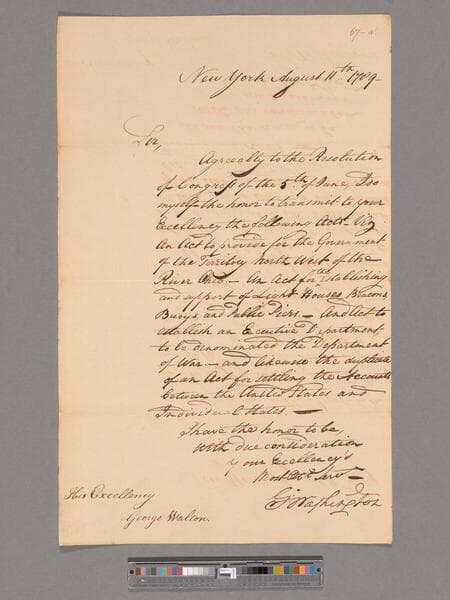 67-a.
New York August 11th 1789
Sir,
Agreeably to the Resolution
of Congress of the 5th of June, I do
myself the honor to transmit to your
Excellency the following Acts Viz
An Act to provide for the Government
of the Territory North West of the
River Ohio. — An Act for the establishing
and support of Light Houses, Beacons
Buoys and Public Piers. — An Act to
establish an Executive Department
to be denominated the Department
of War. — and likewise the duplicate
of an Act for settling the Accounts
between the United States and
Individual States. —
I have the honor to be,
With due consideration
Your Excellency's
Most Obt. Servt
Go Washington
His Excellency
George Walton.